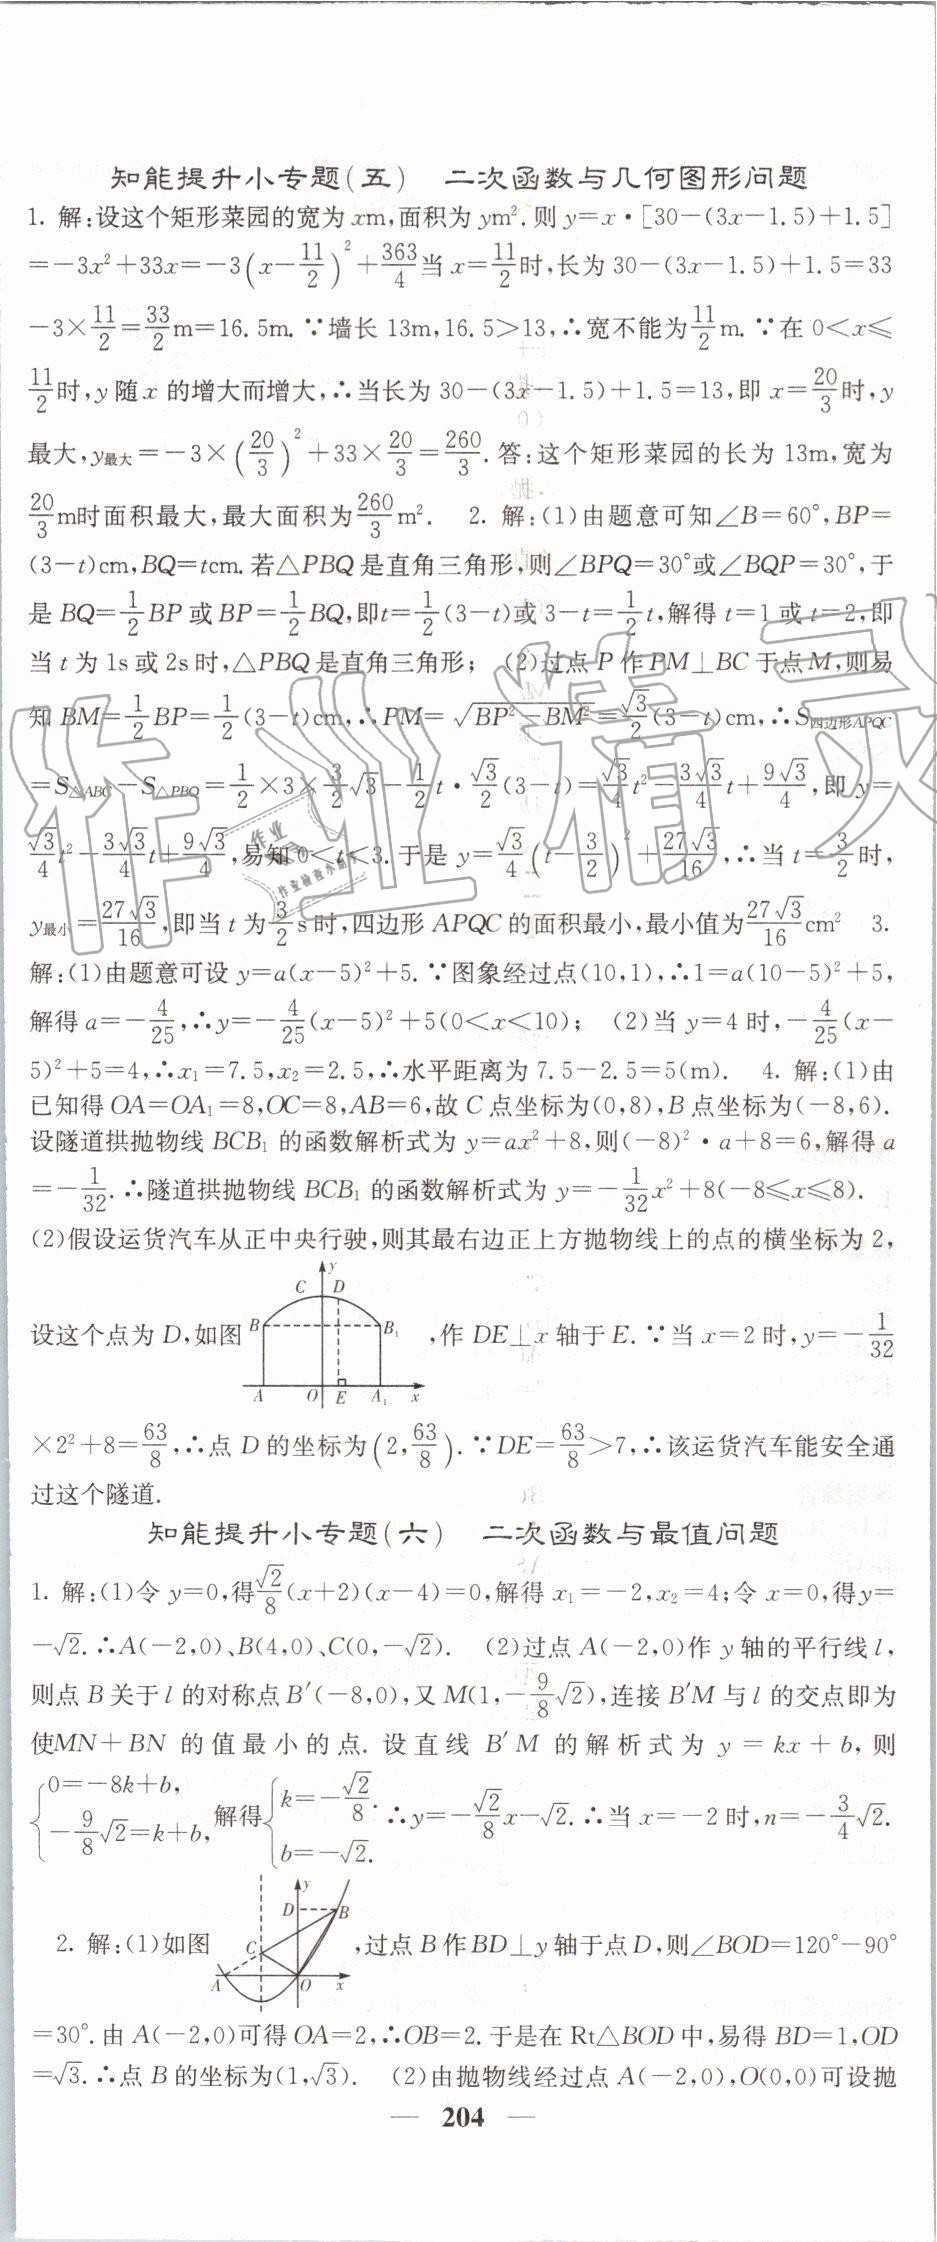 知能提升小专题(五)　二次函数与几何图形问题
1. 解:设这个矩形菜园的宽为 xm,面积为 ym². 则 y=x·[30-(3x-1.5)+1.5]
=-3x²+33x=-3(x-11/2)²+363/4当 x=11/2时,长为 30-(3x-1.5)+1.5=33
-3×11/2=33/2m=16.5m. ∵墙长 13m,16.5>13,∴宽不能为11/2m. ∵在 0<x≤
11/2时,y 随 x 的增大而增大,∴当长为 30-(3x-1.5)+1.5=13,即 x=20/3时,y
最大,y最大=-3×(20/3)²+33×20/3=260/3. 答:这个矩形菜园的长为 13m,宽为
20/3m时面积最大,最大面积为260/3m². 2. 解:(1)由题意可知∠B=60°,BP=
(3-t)cm,BQ=tcm. 若△PBQ 是直角三角形,则∠BPQ=30°或∠BQP=30°,于
是 BQ=1/2BP 或 BP=1/2BQ,即t=1/2(3-t)或 3-t=1/2t,解得 t=1 或 t=2,即
当 t 为 1s 或 2s 时,△PBQ 是直角三角形; (2)过点 P 作 PM⊥BC 于点 M,则易
知 BM=1/2BP=1/2(3-t)cm,∴PM=√(BP²-BM²)=√3/2(3-t)cm,∴S四边形APQC
=S△ABC-S△PBQ=1/2×3×3/2√3-1/2t·√3/2(3-t)=√3/4t²-3√3/4t+9√3/4,即 y=
√3/4t²-3√3/4t+9√3/4,易知 0<t<3. 于是 y=√3/4(t-3/2)²+27√3/16,∴当 t=3/2时,
y最小=27√3/16,即当 t 为3/2s 时,四边形 APQC 的面积最小,最小值为27√3/16cm² 3.
解:(1)由题意可设 y=a(x-5)²+5. ∵图象经过点(10,1),∴1=a(10-5)²+5,
解得 a=-4/25,∴y=-4/25(x-5)²+5(0<x<10); (2)当 y=4 时,-4/25(x-
5)²+5=4,∴x₁=7.5,x₂=2.5,∴水平距离为 7.5-2.5=5(m). 4. 解:(1)由
已知得 OA=OA₁=8,OC=8,AB=6,故 C 点坐标为(0,8),B 点坐标为(-8,6).
设隧道拱抛物线 BCB₁ 的函数解析式为 y=ax²+8,则(-8)²·a+8=6,解得 a
=-1/32. ∴隧道拱抛物线 BCB₁ 的函数解析式为 y=-1/32x²+8(-8≤x≤8).
(2)假设运货汽车从正中央行驶,则其最右边正上方抛物线上的点的横坐标为 2,
y
C D
B B₁
A O E A₁ x
设这个点为 D,如图,作 DE⊥x 轴于 E. ∵当 x=2 时,y=-1/32
×2²+8=63/8,∴点 D 的坐标为(2,63/8). ∵DE=63/8>7,∴该运货汽车能安全通
过这个隧道.
知能提升小专题(六)　二次函数与最值问题
1. 解:(1)令 y=0,得√2/8(x+2)(x-4)=0,解得 x₁=-2,x₂=4;令 x=0,得y=
-√2. ∴A(-2,0)、B(4,0)、C(0,-√2). (2)过点 A(-2,0)作 y 轴的平行线 l,
则点 B 关于 l 的对称点 B′(-8,0),又 M(1,-9/8√2),连接 B′M 与 l 的交点即为
使MN+BN 的值最小的点. 设直线 B′M 的解析式为 y=kx+b,则
{0=-8k+b, -9/8√2=k+b, 解得{k=-√2/8. b=-√2. ∴y=-√2/8x-√2. ∴当 x=-2 时,n=-3/4√2.
y
D B
C
A O x
2. 解:(1)如图,过点 B 作 BD⊥y 轴于点 D,则∠BOD=120°-90°
=30°. 由 A(-2,0)可得 OA=2,∴OB=2. 于是在 Rt△BOD 中,易得 BD=1,OD
=√3. ∴点 B 的坐标为(1,√3). (2)由抛物线经过点 A(-2,0),O(0,0)可设抛
— 204 —
作业精灵
作业
作业检查小助手